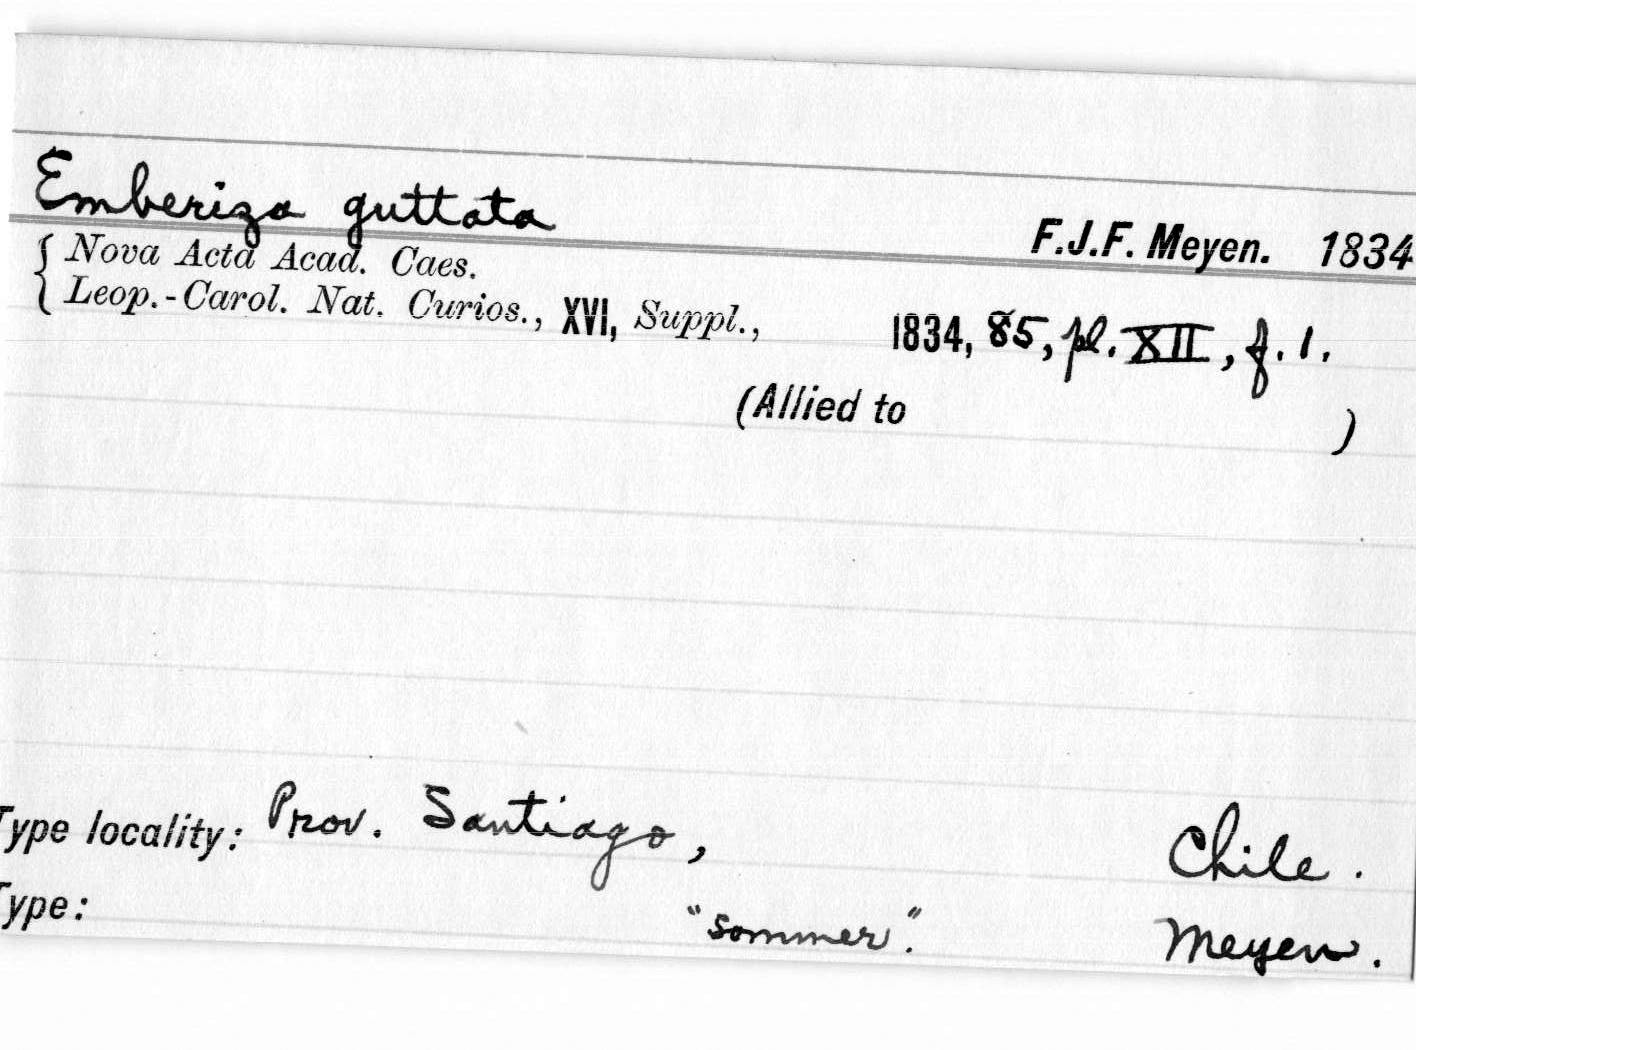 Emberiza guttata
F.J.F. Meyen. 1834
{ Nova Acta Acad. Caes.
{ Leop.-Carol. Nat. Curios., XVI, Suppl., 1834, 85, pl. XII, f. 1.
(Allied to )
Type locality: Prov. Santiago, Chile.
Type: "Sommer". Meyen.